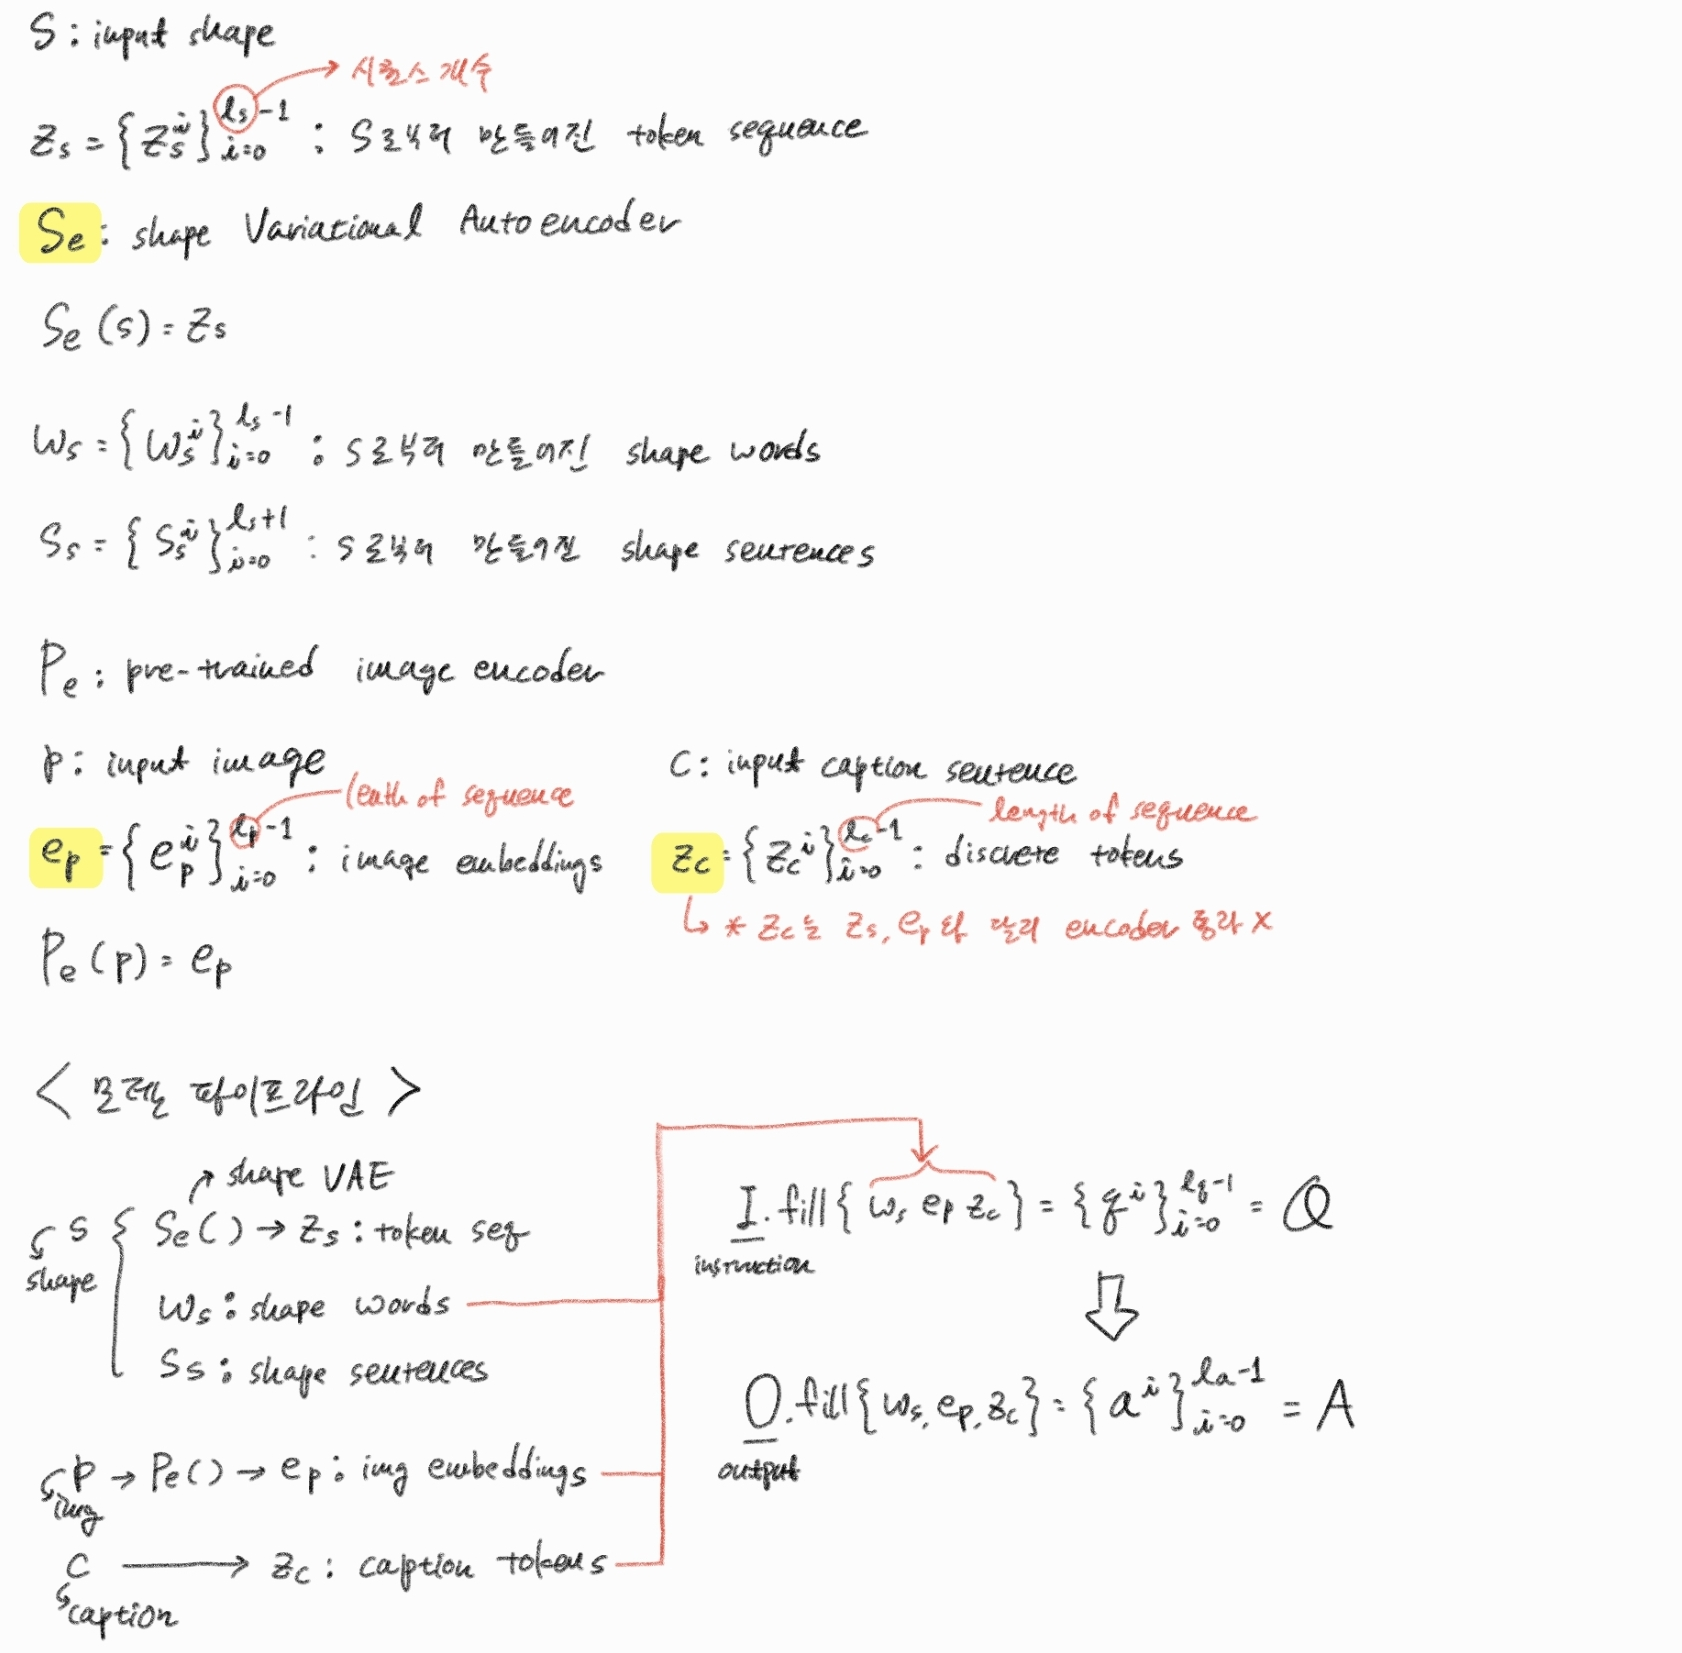 S : input shape
시퀀스 개수
z_s = {z_s^i}_{i=0}^{l_s-1} : S로부터 만들어진 token sequence
S_e : shape Variational Autoencoder
S_e (s) = z_s
w_s = {w_s^i}_{i=0}^{l_s-1} : s로부터 만들어진 shape words
S_s = {S_s^i}_{i=0}^{l_s+1} : s로부터 만들어진 shape sentences
P_e : pre-trained image encoder
p : input image
lenth of sequence
e_p = {e_p^i}_{i=0}^{l_p-1} : image embeddings
P_e (p) = e_p
C : input caption sentence
length of sequence
z_c = {z_c^i}_{i=0}^{l_c-1} : discrete tokens
↳ * z_c는 z_s, e_p와 달리 encoder 통과 X
< 모델 파이프라인 >
shape VAE
s { S_e ( ) → z_s : token seq
shape
w_s : shape words
S_s : shape sentences
p → P_e ( ) → e_p : img embeddings
img
C → z_c : caption tokens
caption
I.fill{ w_s e_p z_c } = {q^i}_{i=0}^{l_q-1} = Q
instruction
O.fill{w_s, e_p, z_c} = {a^i}_{i=0}^{l_a-1} = A
output